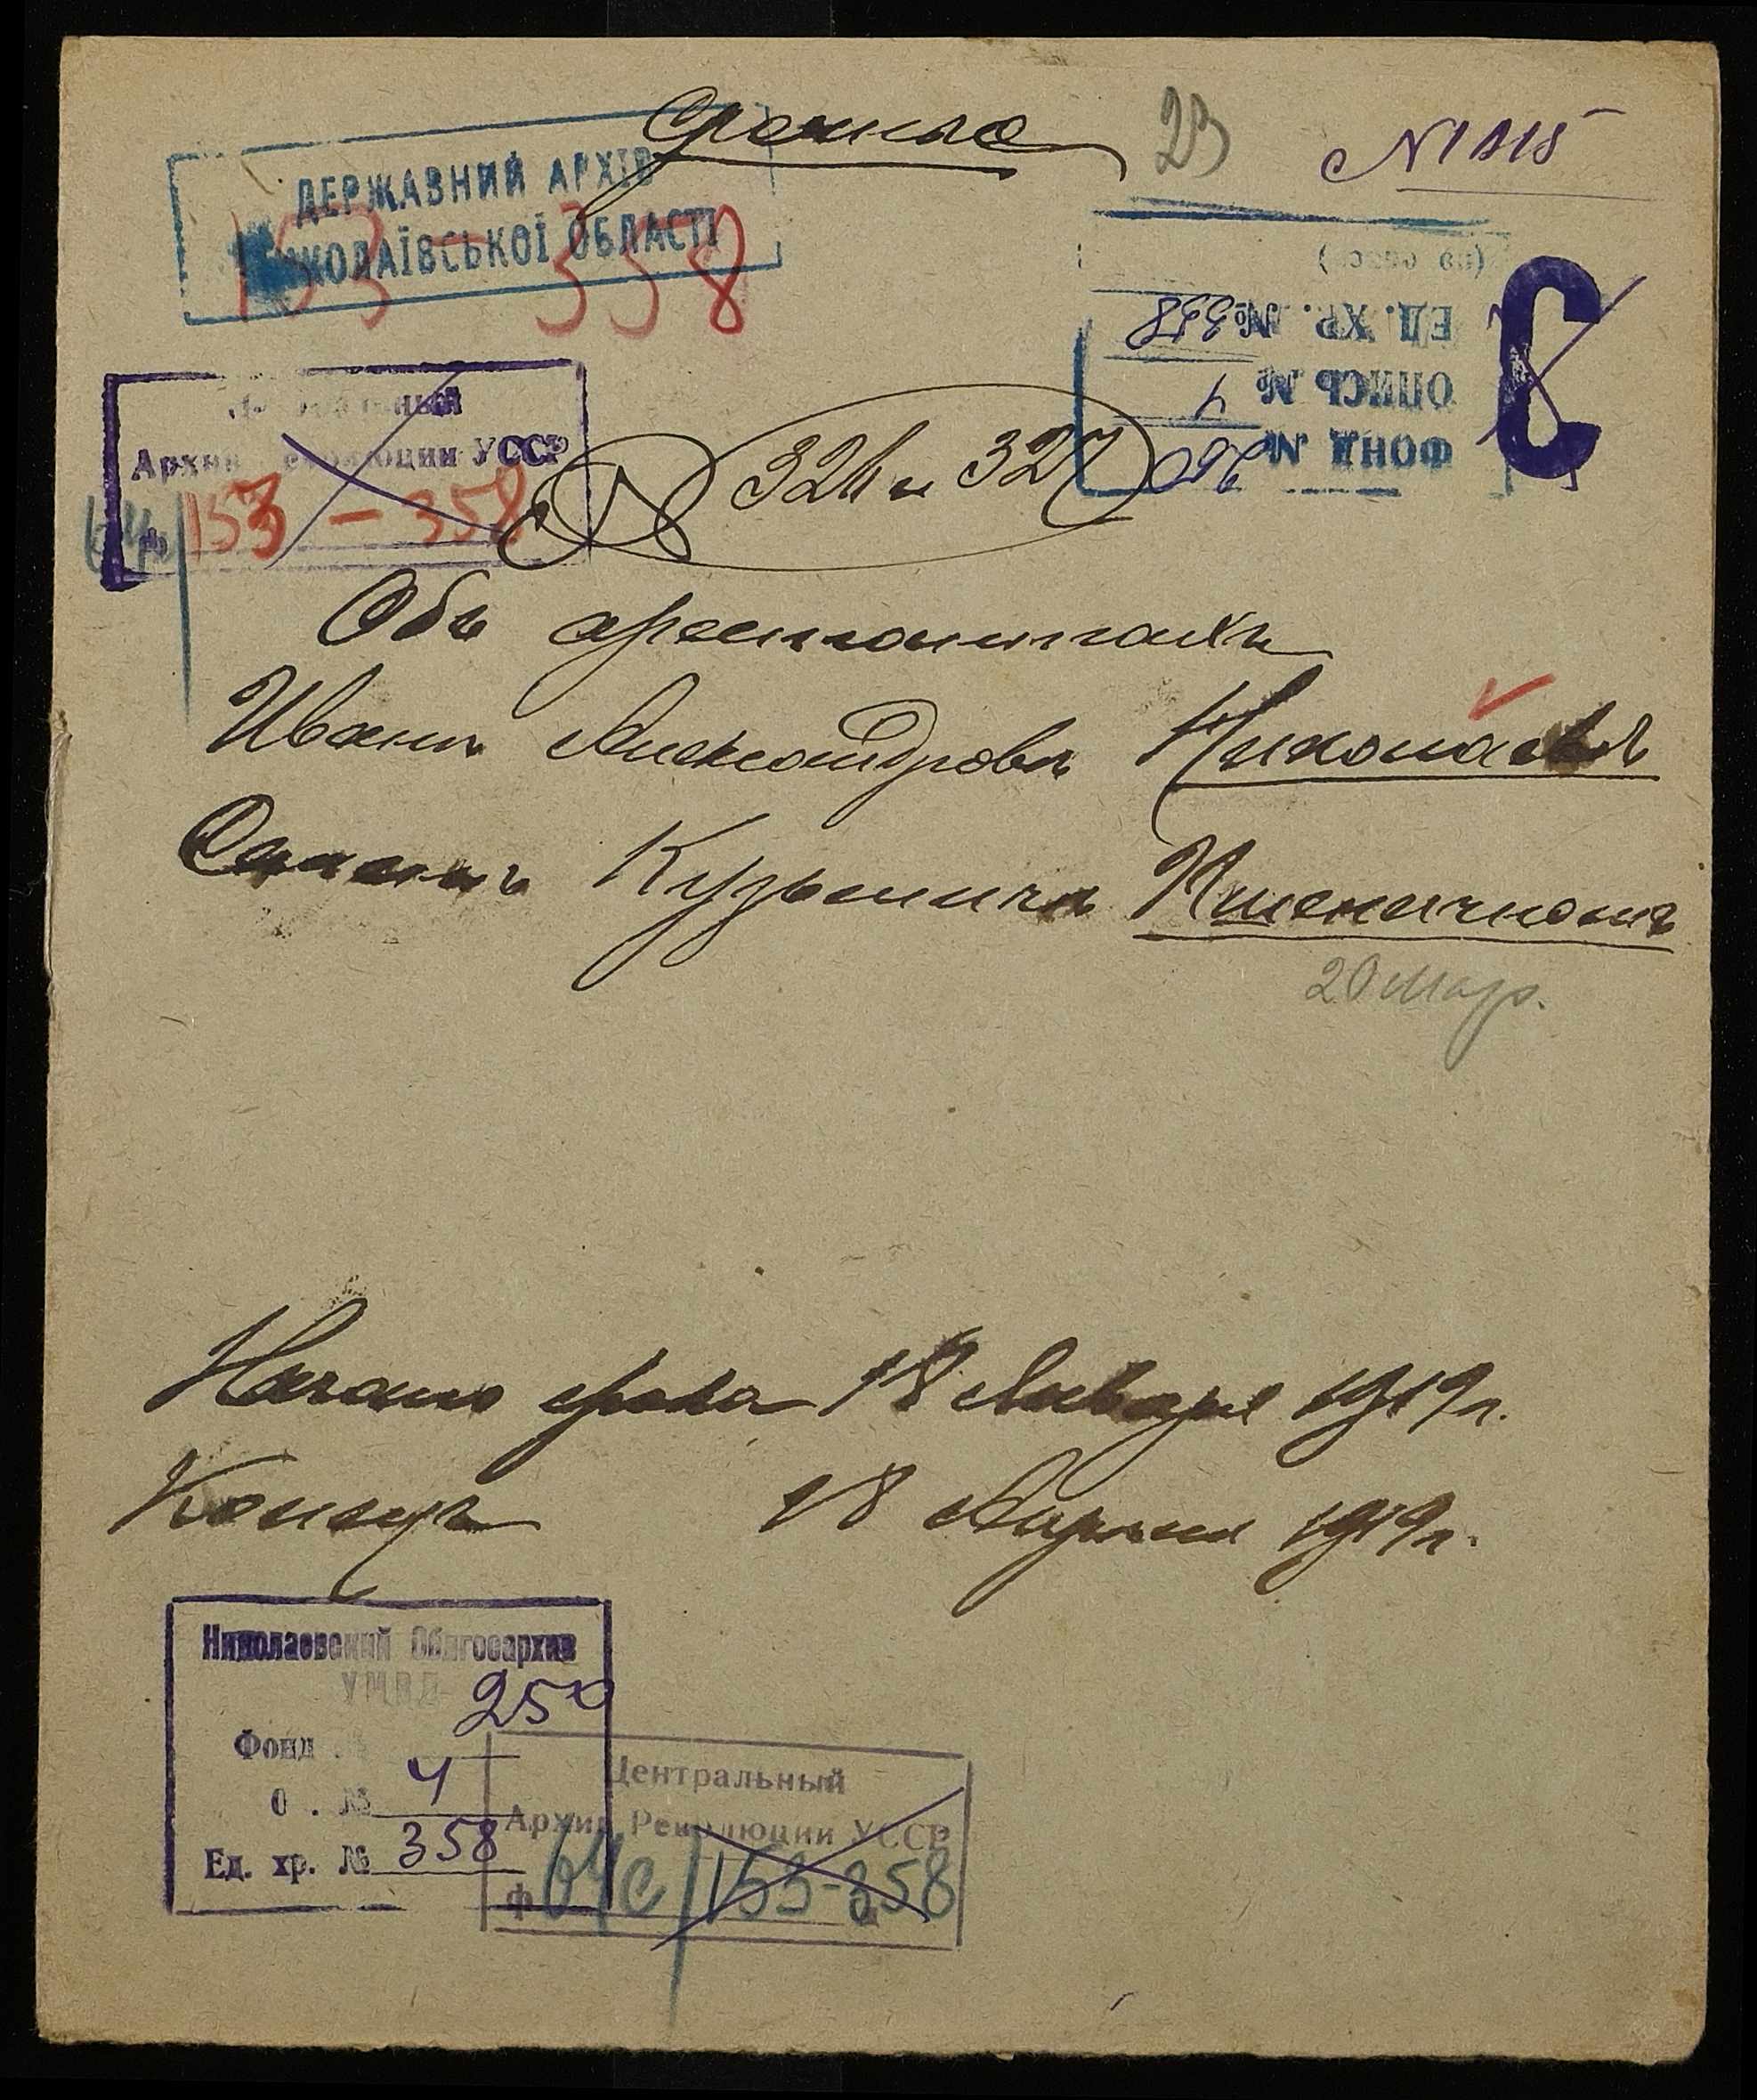 Срочные
23
№ 1115
ДЕРЖАВНИЙ АРХІВ
МИКОЛАЇВСЬКОЇ ОБЛАСТІ
153 - 358
ФОНД № 260
ОПИСЬ № 4
ЕД. ХР. № 358
С
Архив Революции УССР
153 - 358
№ 326 и 327
Объ арестантахъ
Иванъ Александровъ Николаевъ
Кузьмичъ Пшеничномъ
20 Мар.
Начало срока 18 Января 1919 г.
Конецъ 18 Апреля 1919 г.
Николаевский Облгосархив
УМВД
Фонд 250
О . № 4
Ед. хр. № 358
Центральный
Архив Революции УССР
ф 64с/153-358